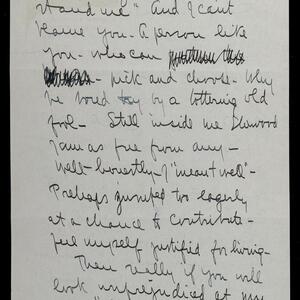 stand me" And I can't
blame you - A person like
you - who can
pick and choose - Why
be bored by a tottering old
fool - Still inside me
I am as free from any -
well - honestly I "meant well" -
Perhaps jumped too eagerly
at a chance to contribute -
feel myself justified for living -
Then really if you will
look unprejudiced at my